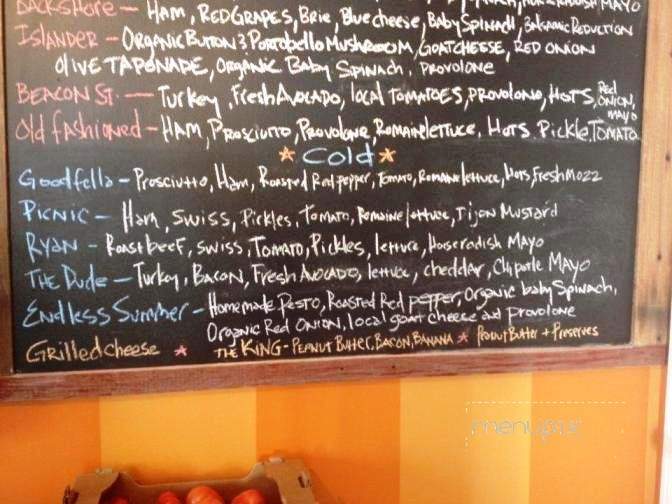 BACKSHORE - HAM, RED GRAPES, Brie, Blue cheese, Baby Spinach, Balsamic Reduction
ISLANDER - ORGANIC BUTTON & Portobello MUSHROOM, GOAT CHEESE, RED ONION
OLIVE TAPONADE, ORGANIC BABY SPINACH, PROVOLONE
BEACON ST. - Turkey, Fresh AVOCADO, local TOMATOES, PROVOLONO, HOTS, Red ONION, MAYO
Old fashioned - HAM, PROSCIUTTO, PROVOLONE, ROMAINE lettuce, Hots, Pickle, TOMATO
* Cold *
Goodfella - Prosciutto, Ham, Roasted Red pepper, Tomato, Romaine lettuce, Hots, Fresh Mozz
PICNIC - Ham, SWISS, Pickles, TOMATO, Romaine lettuce, Dijon Mustard
RYAN - Roast beef, SWISS, TOMATO, Pickles, lettuce, Horseradish MAYO
THE Dude - Turkey, BACON, Fresh AVOCADO, lettuce, cheddar, Chipotle MAYO
ENDLESS SUMMER - Homemade Pesto, Roasted Red pepper, Organic baby Spinach,
Organic Red ONION, local goat cheese and provolone
Grilled cheese * THE KING - PEANUT BUTTER, BACON, BANANA * PEANUT BUTTER + Preserves
menupix